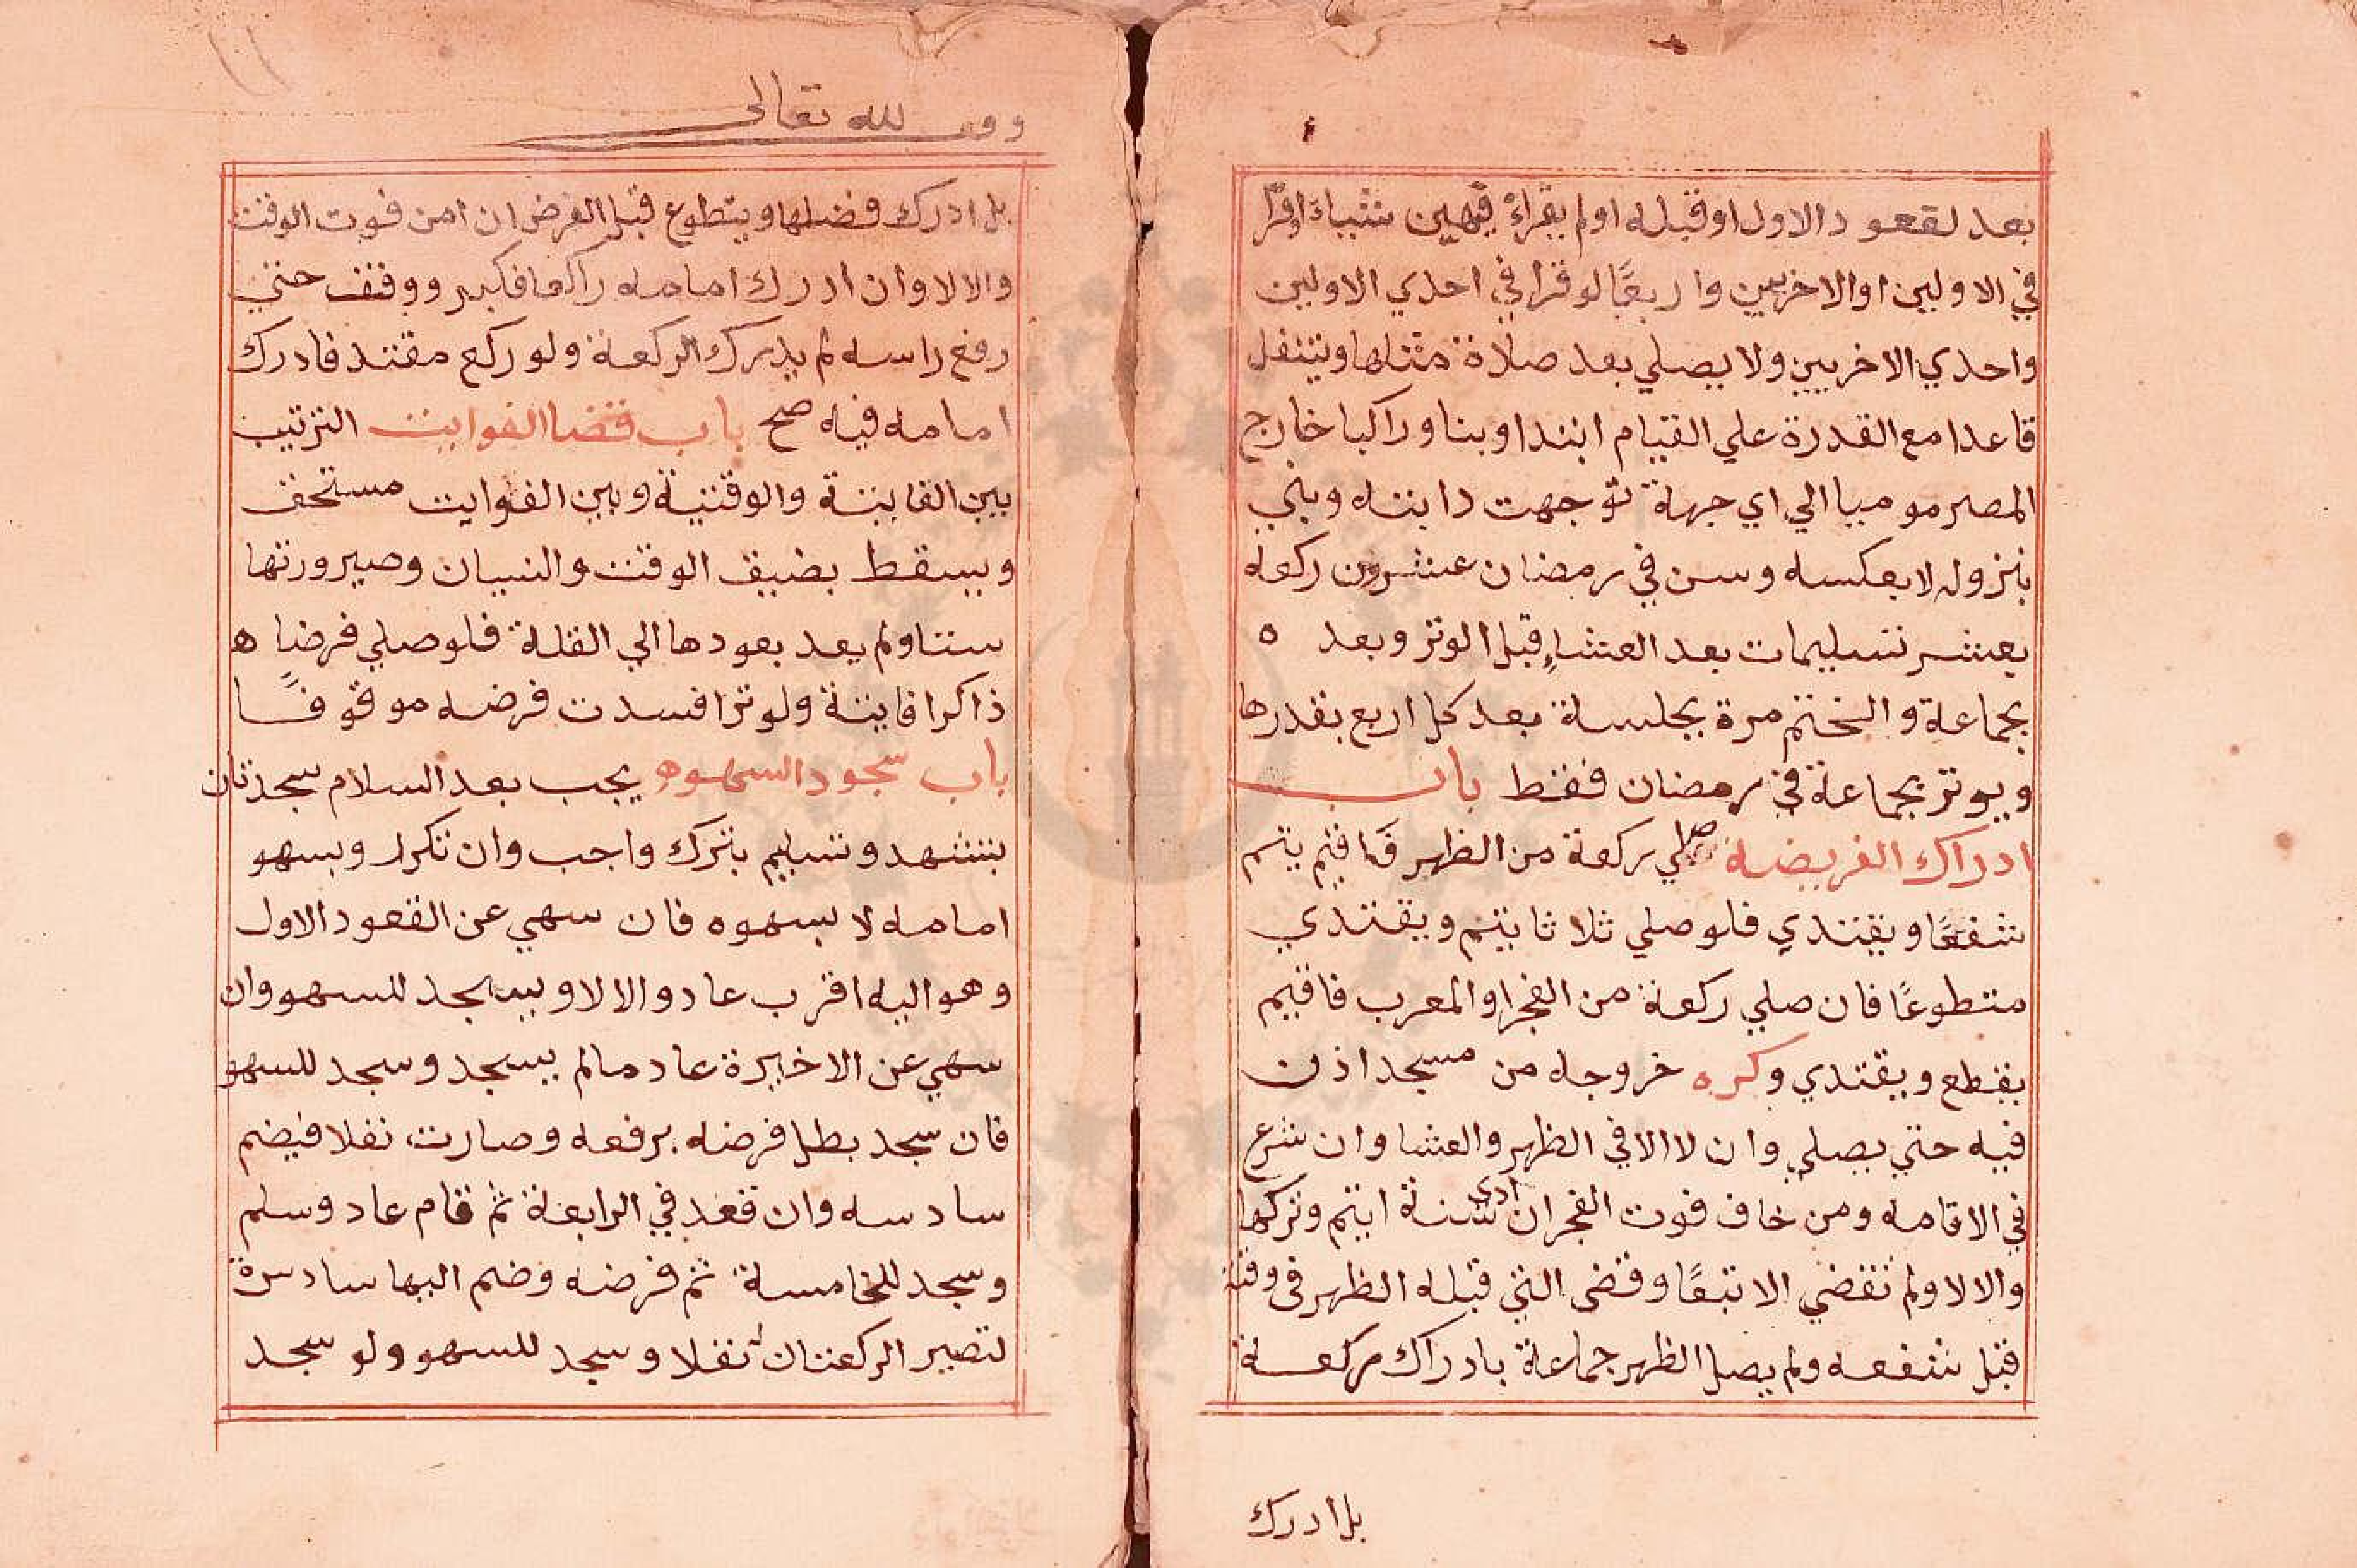 بعد لقعود الاول او قبله او لم يقراء فيهين شياء او قرا
في الاوليين او الاخريين واربعًا لو قرا في احدي الاوليين
واحدي الاخريين ولا يصلي بعد صلاة مثلها ويتنفل
قاعدا مع القدرة علي القيام ابتدا وبنا وراكبا خارج
المصر موميا الي اي جهة توجهت دابته وبني
بنزوله لا بعكسه وسن في رمضان عشرون ركعه
بعشر تسليمات بعد العشاء قبل الوتر وبعد ه
بجماعة والختم مرة بجلسة بعد كل اربع بقدرها
ويوتر بجماعة في رمضان فقط باب
ادراك الفريضه صلي ركعة من الظهر فاقيم يتم
شفعًا ويقتدي فلو صلي ثلاثا يتم ويقتدي
متطوعًا فان صلي ركعة من الفجر او المعرب فاقيم
يقطع ويقتدي وكره خروجه من مسجد اذن
فيه حتي يصلي وان لا الا في الظهر والعشا وان شرع
في الاقامه ومن خاف فوت الفجر ان ادى سنة ايتم وتركها
والا لا ولم تقضي الا تبعًا وقضى التي قبله الظهر فى وقته
قبل شفعه ولم يصل الظهر جماعة بادراك ركعة
بل ادرك
وقف لله تعالى
بل ادرك فضلها ويتطوع قبل الفرض ان امن فوت الوقت
والا لا وان ادرك امامه راكعا فكبر ووقف حتي
رفع راسه لم يدرك الركعة ولو ركع مقتد فادرك
امامه فيه صح باب قضا الفوايت الترتيب
بين الفايتة والوقتية وبين الفوايت مستحق
ويسقط بضيق الوقت والنسيان وصيرورتها
ستا ولم يعد بعودها الي القلة فلو صلي فرضا ه
ذاكرا فايتة ولو وترا فسدت فرضه موقوفًا
باب سجود السهو ه يجب بعد السلام سجدتان
بتشهد وتسليم بترك واجب وان تكرار وبسهو
امامه لا بسهوه فان سهي عن القعود الاول
وهو اليه اقرب عاد والا لا ويسجد للسهو وان
سهي عن الاخيرة عاد مالم يسجد وسجد للسهو
فان سجد بطل فرضه برفعه وصارت نفلا فيضم
سادسه وان قعد في الرابعة ثم قام عاد وسلم
وسجد للخامسة ثم فرضه وضم اليها سادسة
لتصير الركعتان نفلا وسجد للسهو ولو سجد